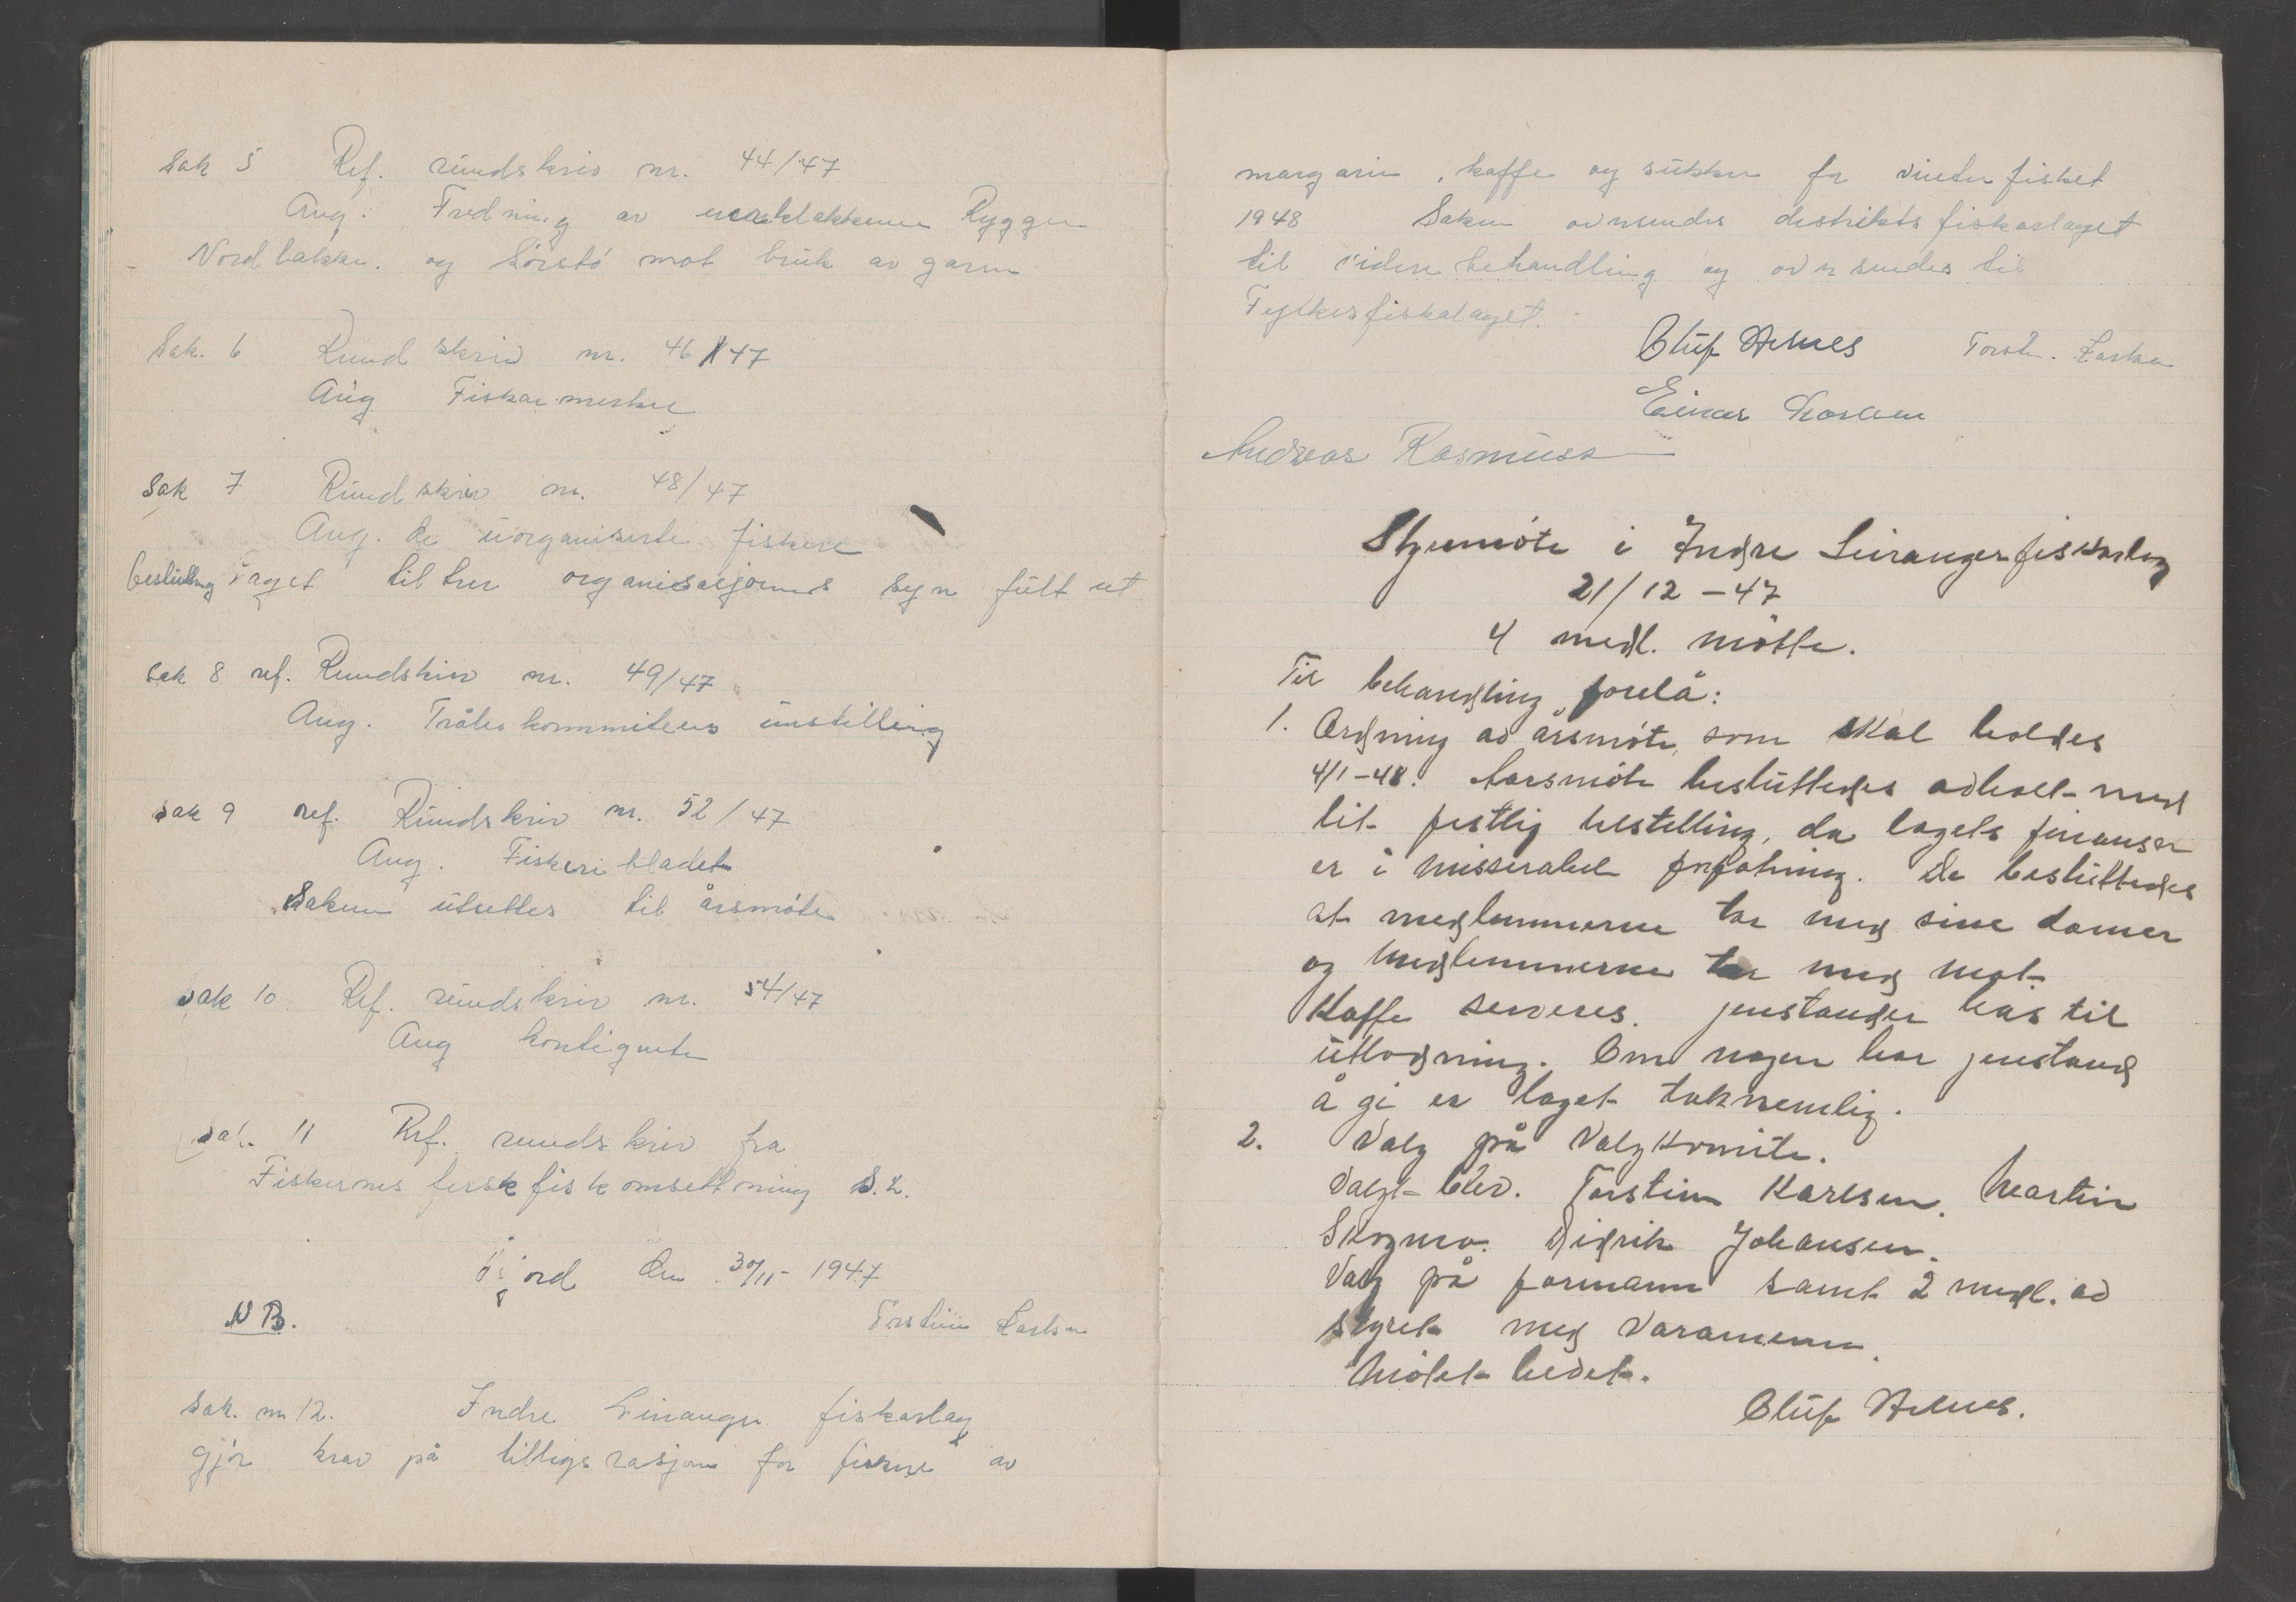 Sak 5 Ref. rundskriv nr. 44/47
Ang. Fredning av Ryggen
Nordbakken. og Sørstø mot bruk av garn
Sak. 6 Rundskriv nr. 46/47
Ang Fiskarmerke
Sak 7 Rundskriv nr. 48/47
Ang. de uorganiserte fiskere
beslutning laget tiltrer organisasjonens syn fult ut
Sak 8 ref. Rundskriv nr. 49/47
Ang. Trålerkommiteens instilling
Sak 9 ref. Rundskriv nr. 52/47
Ang. Fiskeribladet
Saken utsettes til årsmøte
Sak 10 Ref. rundskriv nr. 54/47
Ang kontigenten
Sak. 11 Ref. rundskriv fra
Fiskernes ferskfiskomsettning S.L.
den 30/11- 1947
N B.
Torstein Karlsen
Sak. nr 12. Indre Leiranger fiskarlag
gjør krav på tilligsrasjon for fiskere av
margarin, kaffe og sukker for vinterfisket
1948 Saken oversendes distriktsfiskarlaget
til videre behandling og oversendes til
Fylkesfiskalaget.
Oluf Torst. Karlsen
Einar
Andreas Rasmuss
Styremøte i Indre Leiranger fiskarlag
21/12 - 47
4 medl. møtte.
Til behandling forelå:
1. Ordning av årsmøte, som skal holdes
4/1-48. Aarsmøte besluttedes avholt med
lit festlig tilstelling, da lagets finanser
er i misserabel forfatning. De besluttedes
at medlemmerne tar med sine damer
og medlemmerne tar med mat.
Kaffe serveres. jenstander has til
utlodning. Om nogen har jenstand
å gi er laget taknemlig.
2. Valg på Valgkomite.
Valgt blev. Torstein Karlsen. Martin
Skogmo. Didrik Johansen.
Valg på formann samt 2 medl. av
styret med varamenn.
Møtet hevet.
Oluf